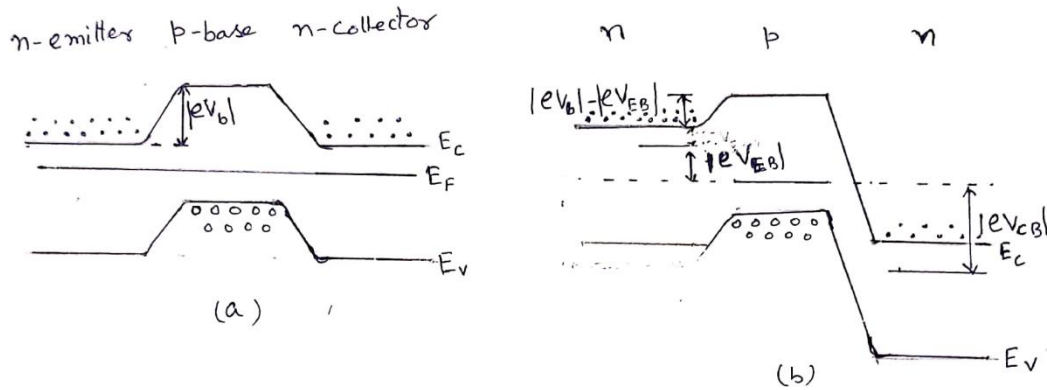 n-emitter p-base n-collector
|eV_b|
E_C
E_F
E_V
(a)
n p n
|eV_b|-|eV_EB|
|eV_EB|
|eV_CB|
E_C
E_V
(b)